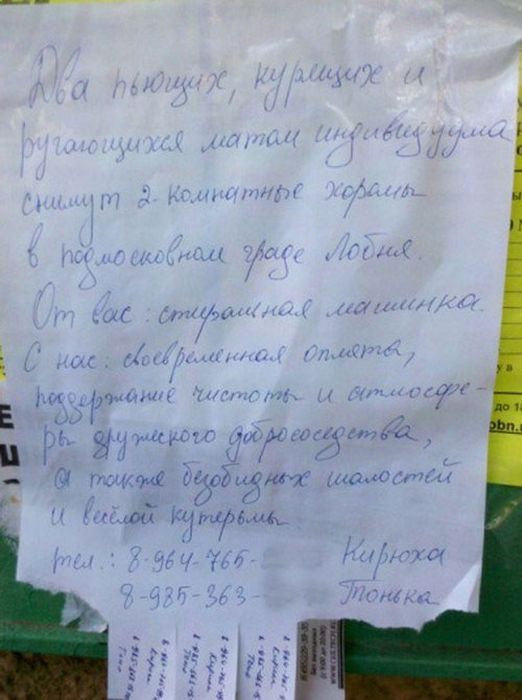 Два пьющих, курящих и
ругающихся матом индивидуума
снимут 2-комнатные хоромы
в подмосковном граде Лобня.
От вас: стиральная машинка.
С нас: своевременная оплаты,
поддержание чистоты и атмосфе-
ры дружеского добрососедства,
а также безобидных шалостей
и весёлой кутерьмы.
тел.: 8-964-765- Кирюха
8-985-363- Тонька
до 18
obn.ru